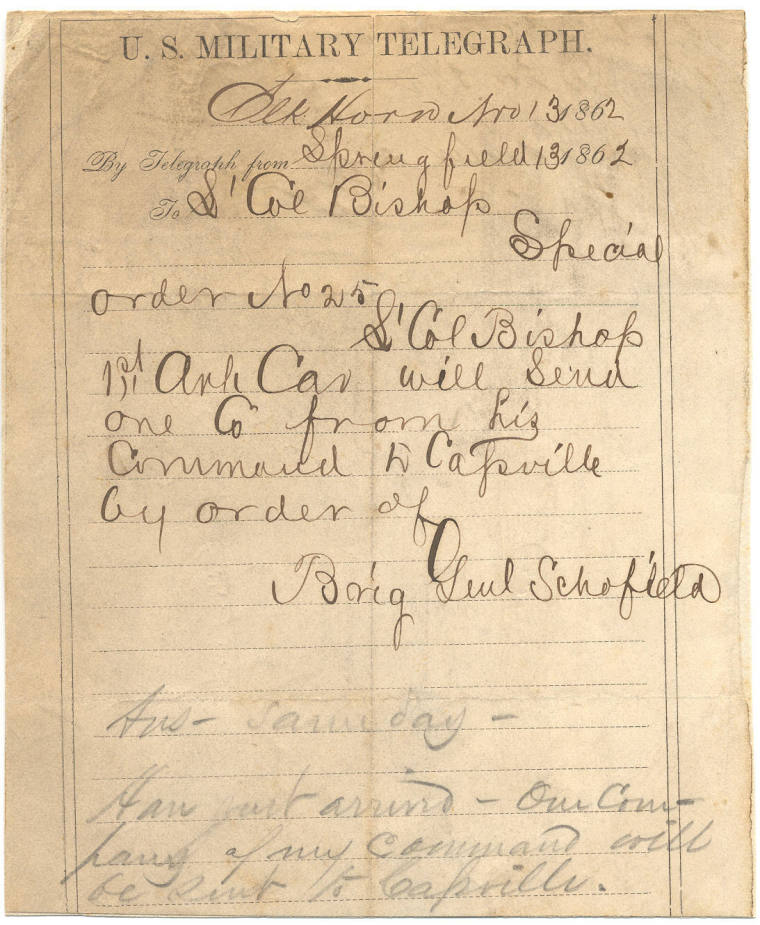 U. S. MILITARY TELEGRAPH.
Elk Horn Nov 13 1862
By Telegraph from Springfield 13 1862
To Lt Col Bishop
Special
order No 25
Lt Col Bishop
1st Ark Cav will Send
one Co from his
Command to Cassville
by order of
Brig Genl Schofield
Ans - same day -
Have just arrived - One Com-
pany of my command will
be sent to Cassville.